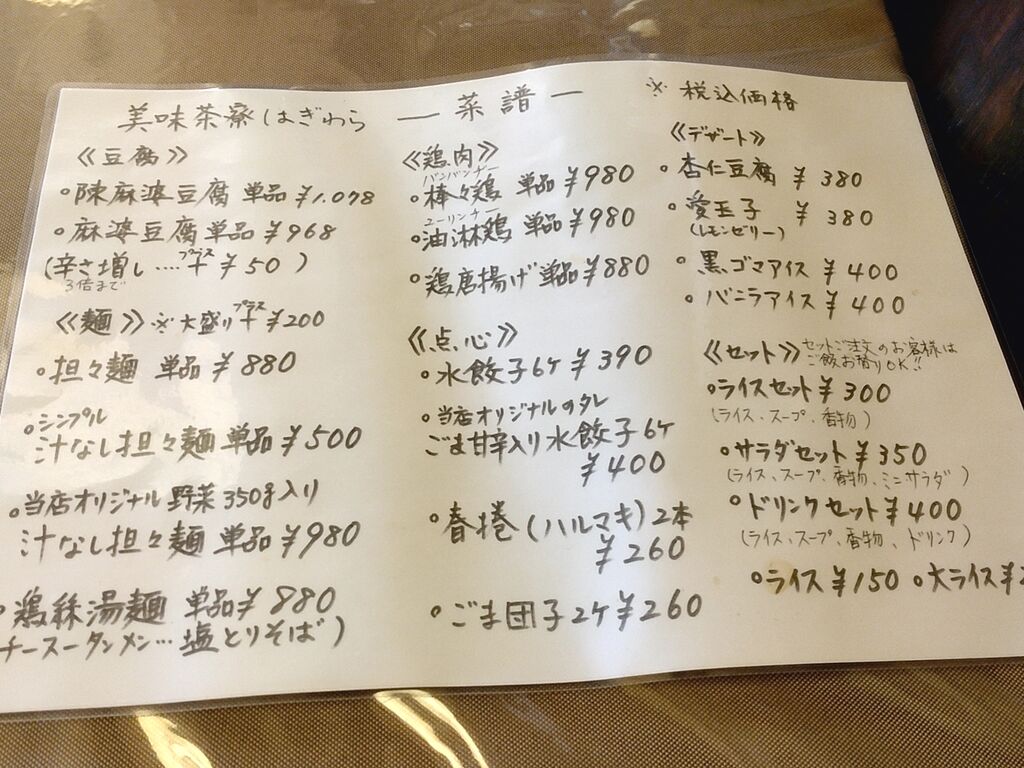 美味茶寮はぎわら
— 菜譜 —
※税込価格
《豆腐》
・陳麻婆豆腐 単品 ¥1.078
・麻婆豆腐 単品 ¥968
プラス
(辛さ増し....+ ¥50)
3倍まで
プラス
《麺》※大盛り+¥200
・担々麺 単品 ¥880
・シンプル
汁なし担々麺 単品 ¥500
・当店オリジナル 野菜350g入り
汁なし担々麺 単品 ¥980
・鶏絲湯麺 単品¥880
チースータンメン…塩とりそば)
《鶏肉》
バンバンヂー
・棒々鶏 単品 ¥980
ユーリンチー
・油淋鶏 単品 ¥980
・鶏唐揚げ 単品 ¥880
《点心》
・水餃子6ケ ¥390
・当店オリジナルのタレ
ごま甘辛入り水餃子6ケ
¥400
・春捲(ハルマキ)2本
¥260
・ごま団子2ケ ¥260
《デザート》
・杏仁豆腐 ¥380
・愛玉子 ¥380
(レモンゼリー)
・黒ゴマアイス ¥400
・バニラアイス ¥400
《セット》セットご注文のお客様は
ご飯お替りOK!!
・ライスセット ¥300
(ライス、スープ、香物)
・サラダセット ¥350
(ライス、スープ、香物、ミニサラダ)
・ドリンクセット ¥400
(ライス、スープ、香物、ドリンク)
・ライス ¥150 ・大ライス ¥2